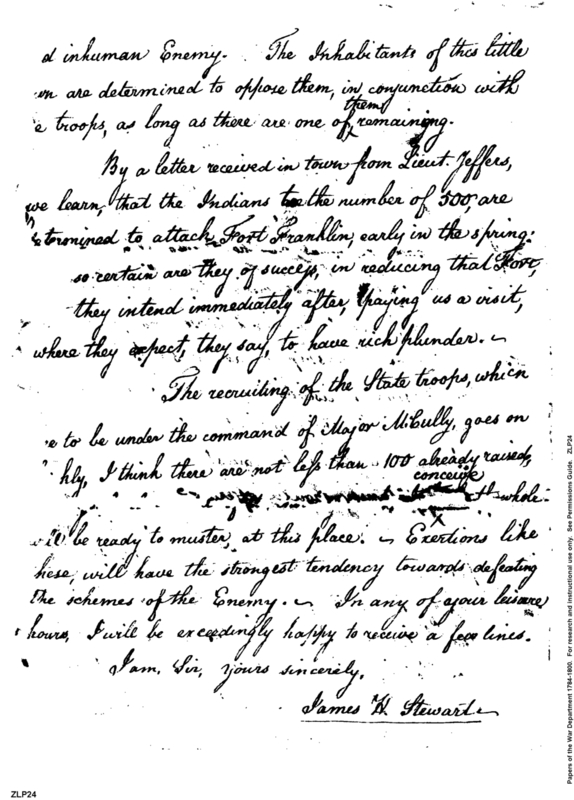 d inhuman Enemy. The Inhabitants of this little
wn are determined to oppose them, in conjunction with
them
e troops, as long as there are one of remaining.
By a letter received in town from Lieut. Jeffers,
we learn, that the Indians to the number of 500, are
termined to attack Fort Franklin, early in the spring:
so certain are they of success, in reducing that Fort,
they intend immediately after, paying us a visit,
where they expect, they say, to have rich plunder.
The recruiting of the State troops, which
e to be under the command of Major McCully, goes on
hly, I think there are not less than 100 already raised,
conceive
whole
will be ready to muster, at this place. Exertions like
hese, will have the strongest tendency towards defeating
the schemes of the Enemy. In any of your leisure
hours, I will be exceedingly happy to receive a few lines.
I am, Sir, yours sincerely,
James H. Stewart
ZLP24
Papers of the War Department 1784-1800. For research and instructional use only. See Permissions Guide. ZLP24